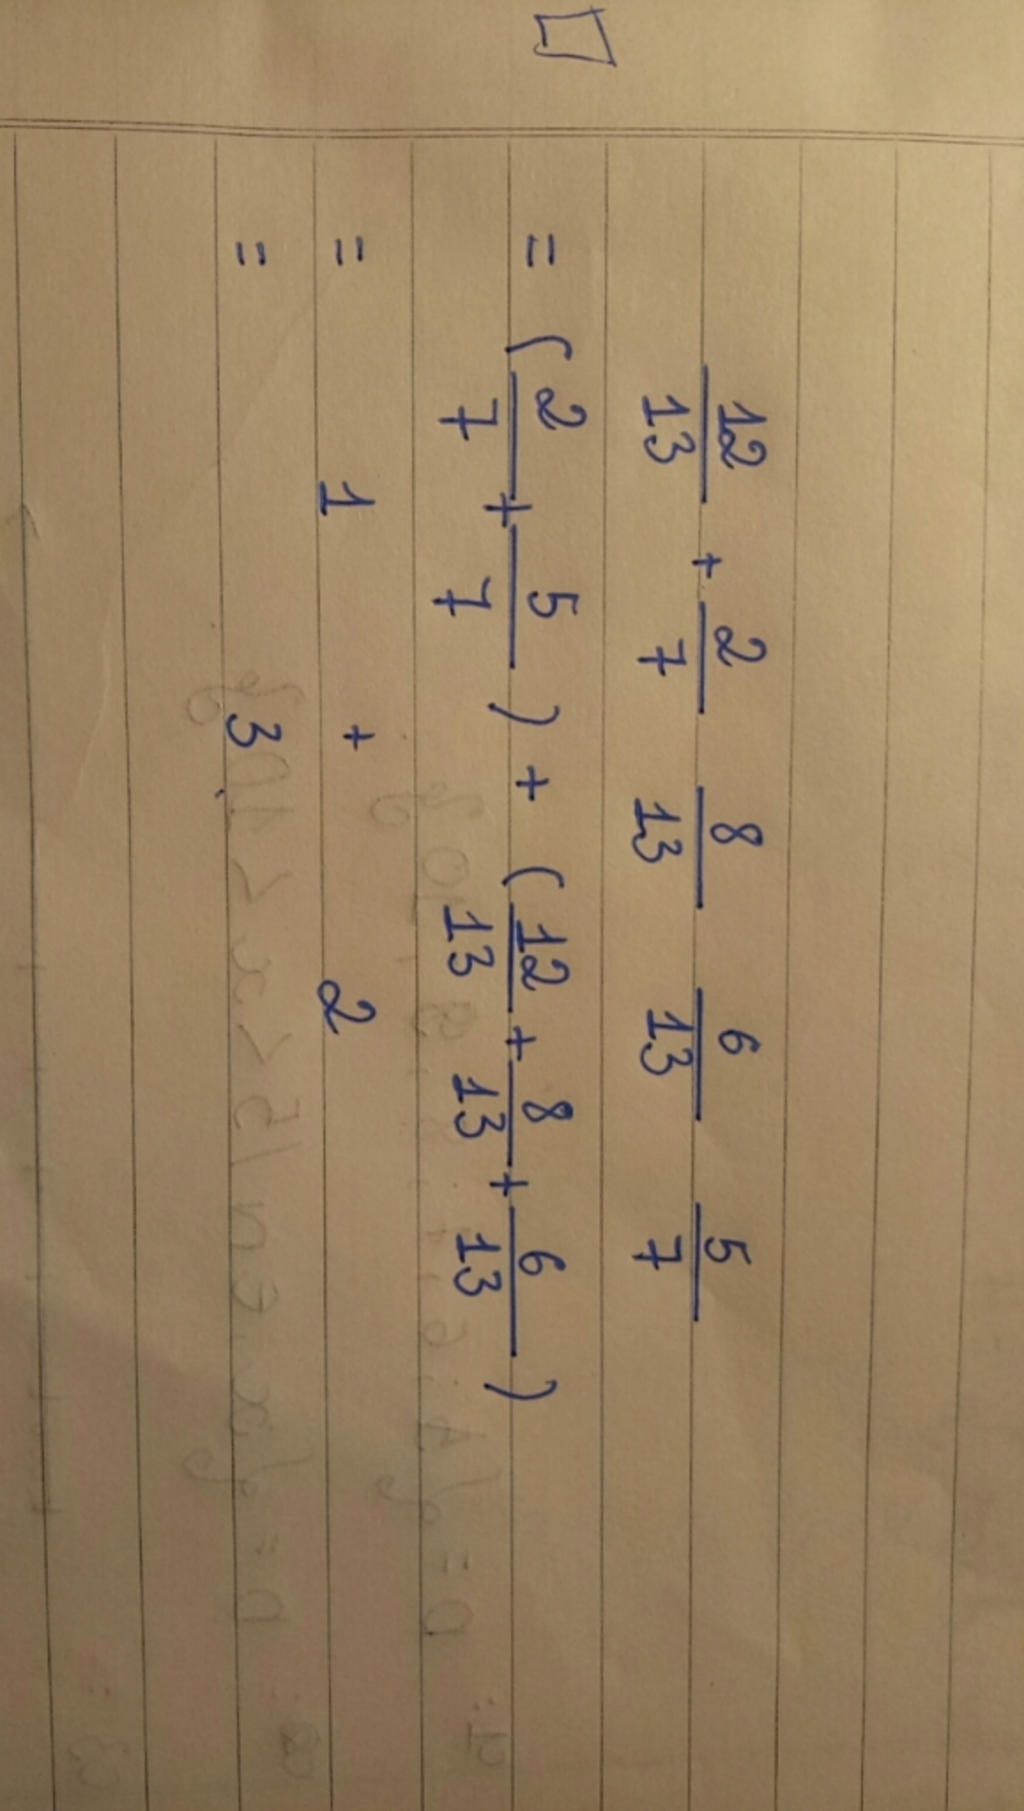 12/13 + 2/7 8/13 6/13 5/7
= (2/7 + 5/7) + (12/13 + 8/13 + 6/13)
= 1 + 2
= 3